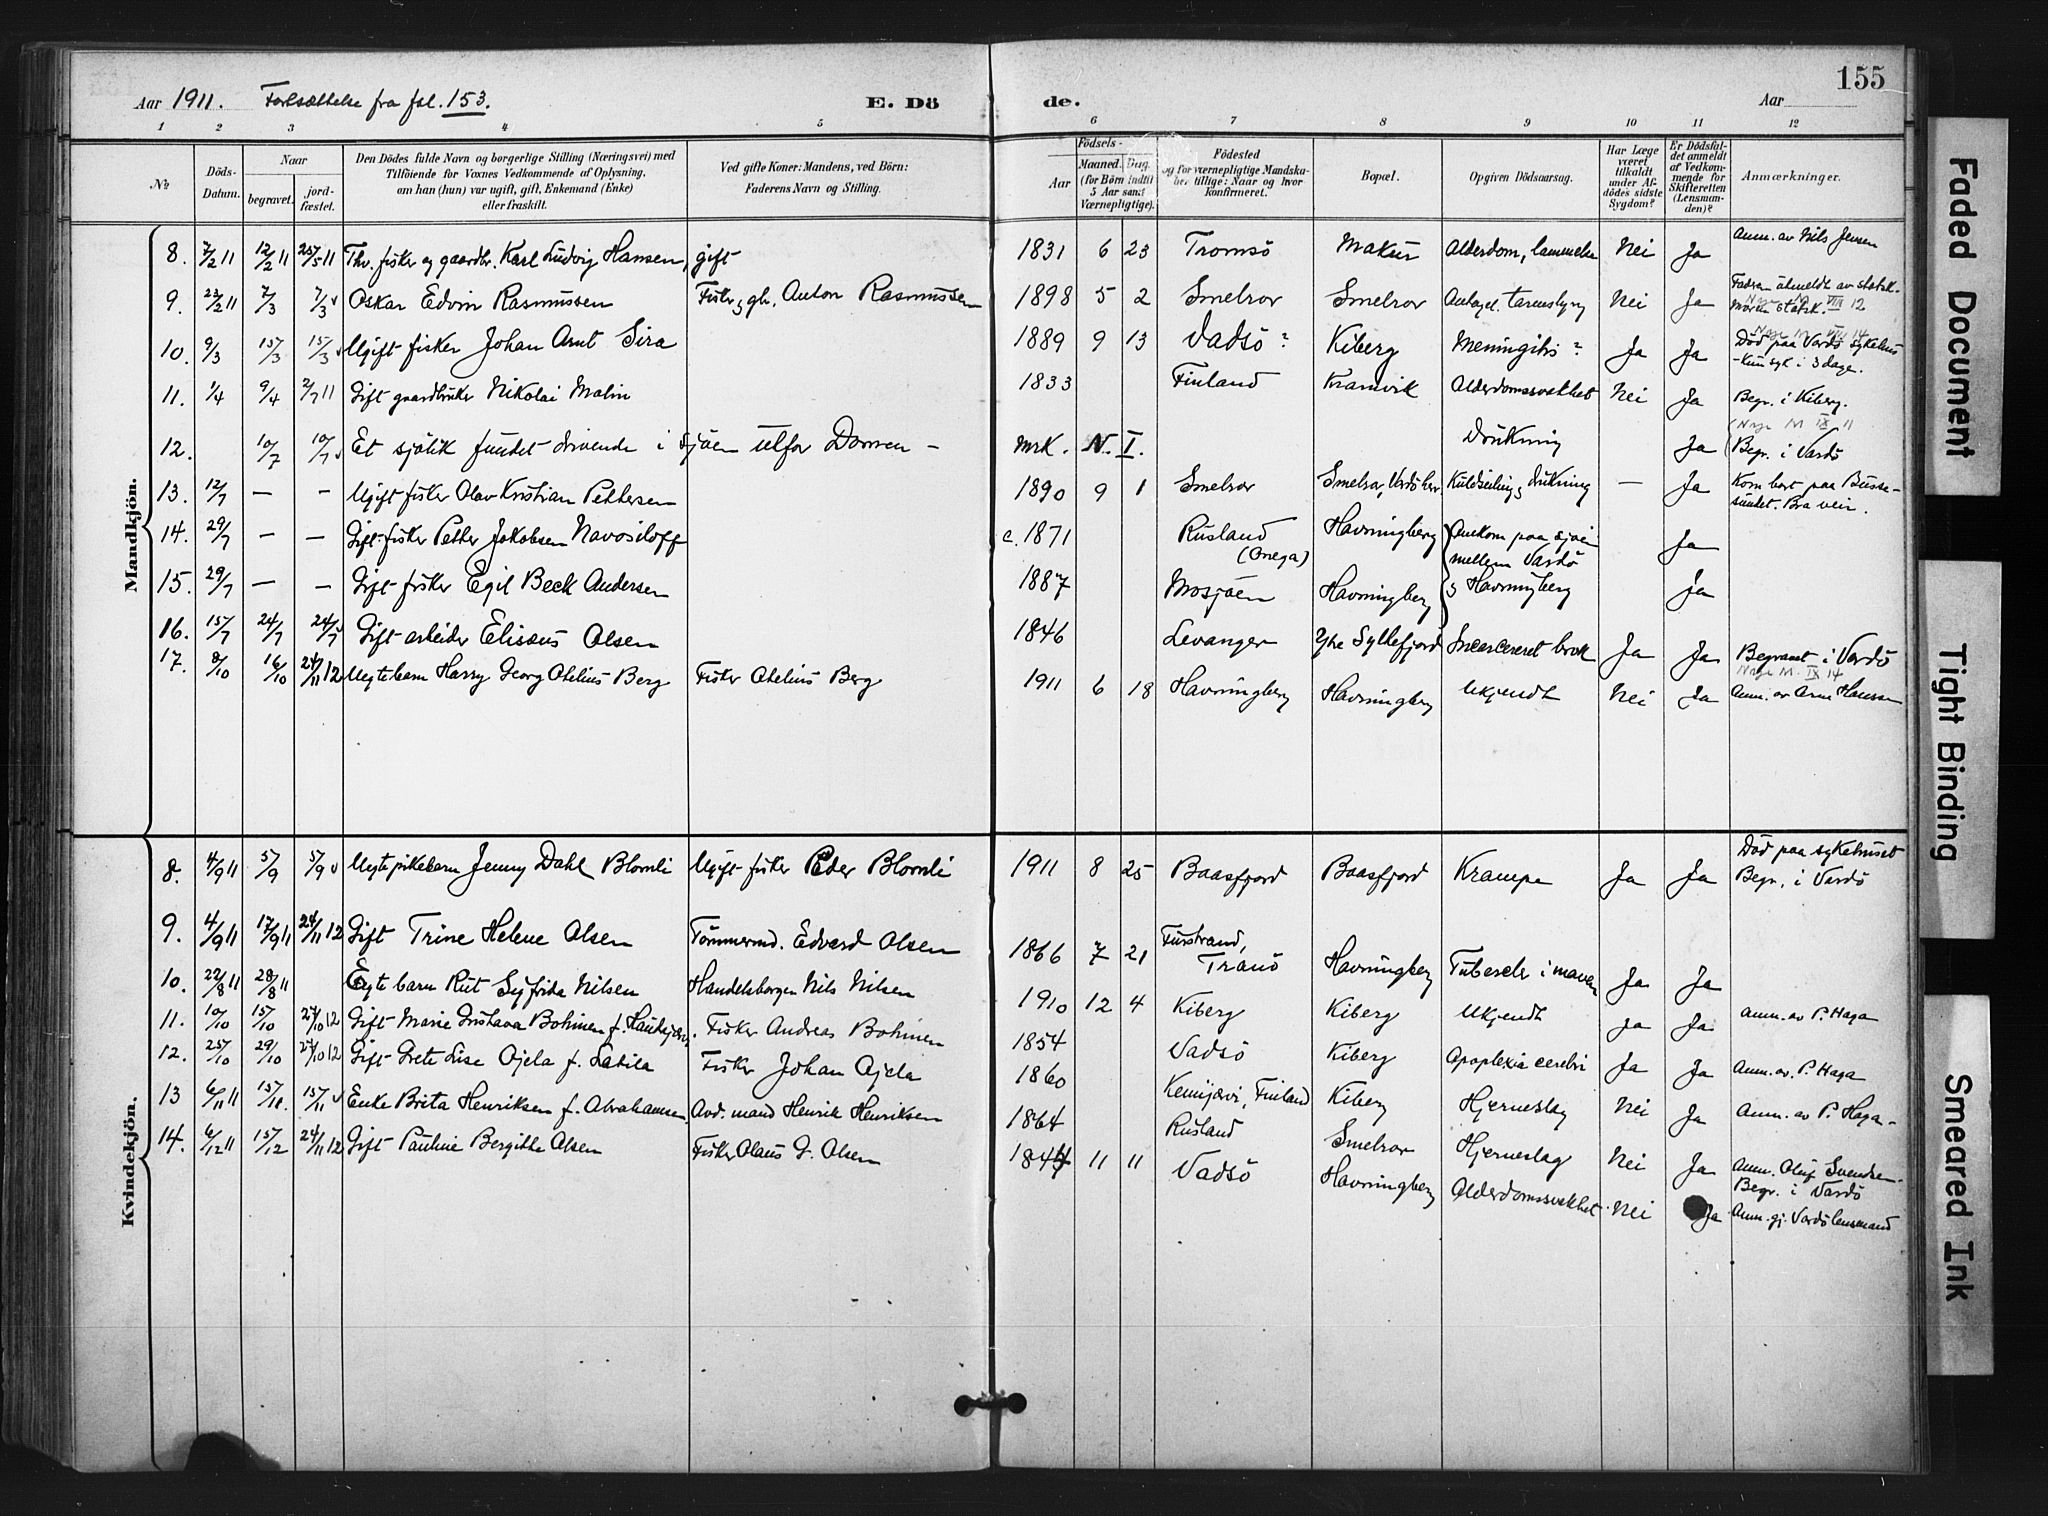 Aar 1911. Fortsættelse fra fol. 153.
E. Dö
de.
Aar
155
1 2 3 4 5 6 7 8 9 10 11 12
№
Döds-Datum.
Naar
begravet.
jord-fæstet.
Den Dödes fulde Navn og borgerlige Stilling (Næringsvei) med
Tilföiende for Voxnes Vedkommende af Oplysning,
om han (hun) var ugift, gift, Enkemand (Enke)
eller fraskilt.
Ved gifte Koner: Mandens, ved Börn:
Faderens Navn og Stilling.
Födsels-
Aar
Maaned. Dag.
(for Börn indtil
5 Aar samt
Værnepligtige).
Födested
og for værnepligtige Mandska-
ber tillige: Naar og hvor
konfirmeret.
Bopæl.
Opgiven Dödsaarsag.
Har Læge
været
tilkaldt
under Af-
dödes sidste
Sygdom?
Er Dödsfal-
det anmeldt
af Vedkom-
mende for
Skifteretten
(Lensman-
den)?
Anmærkninger.
Mandkjön.
8. 7/2 11 12/2 11 25/5 11 Fhv. fisker og gaardbr. Karl Ludvig Hansen, gift 1831 6 23 Tromsö Makur Alderdom, lammelse Nei Ja Anm. av Nils Jensen
9. 23/2 11 7/3 7/3 Oskar Edvin Rasmussen Fisker, gbr. Anton Rasmussen 1898 5 2 Smelror Smelror Antagel. tarmslyng Nei Ja Faderen utmeldt av statsk.
Moren statsk. VIII 12
10. 9/3 15/3 15/3 Ugift fisker Johan Arnt Sira 1889 9 13 Vadsö? Kiberg Meningitis? Ja Ja Död paa Vardö sykehus
- kun syk i 3 dage.
11. 1/4 9/4 2/7 11 Gift gaardbruker Nikolai Malin 1833 Finland Kramvik Alderdomssvakhet Nei Ja Begr. i Kiberg.
12. 10/7 10/7 Et sjölik fundet drivende i sjöen utfor Domen - mrk. N. I. Drukning Ja Begr. i Vardö
13. 12/7 — - Ugift fisker Olav Kristian Pettersen 1890 9 1 Smelror Smelror, Vardö her. Kuldseiling, drukning — Ja Kom bort paa Busse-
sundet. Bra veir.
14. 29/7 — — Gift fisker Petter Jakobsen Navosiloff c. 1871 Rusland
(Onega) Havningberg Omkom paa sjöen
mellem Vardö Ja
15. 29/7 — — Gift fisker Egil Beck Andersen 1887 Mosjöen Havningberg Havningberg Ja
16. 15/7 24/7 24/7 Gift arbeider Elisæus Olsen 1846 Levanger Ytre Syltefjord Incarcereret brok Ja Ja Begravet i Vardö
17. 8/10 16/10 24/11 12 Uegte barn Harry Georg Otelius Berg Fisker Otelius Berg 1911 6 18 Havningberg Havningberg Ukjendt Nei Ja Anm. av Arne Hansen
Kvindekjön.
8. 4/9 11 5/9 5/9 Uegte pikebarn Jenny Dahl Blomli Ugift fisker Peder Blomli 1911 8 25 Baasfjord Baasfjord Krampe Ja Ja Död paa sykehuset
Begr. i Vardö
9. 4/9 11 17/9 11 24/11 12 Gift Trine Helene Olsen Tömmermd. Edvard Olsen 1866 7 21 Furstrand,
Tranö Havningberg Tuberkler i maven Ja Ja
10. 22/8 11 28/8 11 Egte barn Rut Syfrida Nilsen Handelsborger Nils Nilsen 1910 12 4 Kiberg Kiberg Ukjendt Ja Ja Anm. av P. Haga
11. 10/10 15/10 27/10 12 Gift Marie Gustava Bohinen f. Haukijervi. Fisker Andreas Bohinen 1854 Vadsö Kiberg Apoplexia cerebri Ja Ja Anm. av. P. Haga
12. 25/10 29/10 27/10 12 Gift Grete Lise Ojela f. Latila Fisker Johan Ojela 1860 Kemijærvi, Finland Kiberg Hjerneslag Nei Ja Anm. av P. Haga-
13 6/11 11 15/11. 15/11 Enke Brita Henriksen f. Abrahamsen Avd. mand Henrik Henriksen 1864 Rusland Smelror Hjerneslag Nei Ja Anm. Oluf Svendsen.
Begr. i Vardö
14. 6/12 11 15/12 24/11 12 Gift Pauline Bergithe Olsen Fisker Olaus G. Olsen 1844 11 11 Vadsö Havningberg Alderdomssvakhet Nei Ja Anm. gj. Vardö lensmand
Faded Document
Tight Binding
Smeared Ink